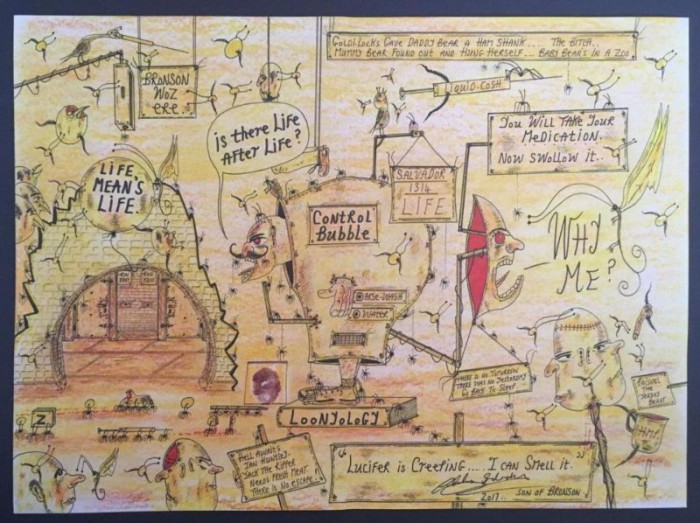 GOLDILOCKS GAVE DADDY BEAR A HAM SHANK... THE BITCH..
MUMMY BEAR FOUND OUT AND HUNG HERSELF... BABY BEAR'S IN A ZOO
BRONSON
WOZ
ERE..
LIQUID-COSH
is there Life
AFTER Life?
YOU WILL TAKE YOUR
MEDICATION.
NOW SWOLLOW IT..
LIFE,
MEAN'S
LIFE.
SALVADOR
1314
LIFE
CONTROL
BUBBLE
WHY
ME?
ARSE-WASH
WATER
THERE IS NO TOMORROW
THERE WAS NO YESTERDAY
GO BACK TO SLEEP
Z
LOONYOLOGY
HMP
HELL AWAITS
IAN HUNTLEY.
JACK THE RIPPER
NEEDS FRESH MEAT.
THERE IS NO ESCAPE!
"LUCIFER IS CREEPING.... I CAN SMELL IT."
2017.. SON OF BRONSON